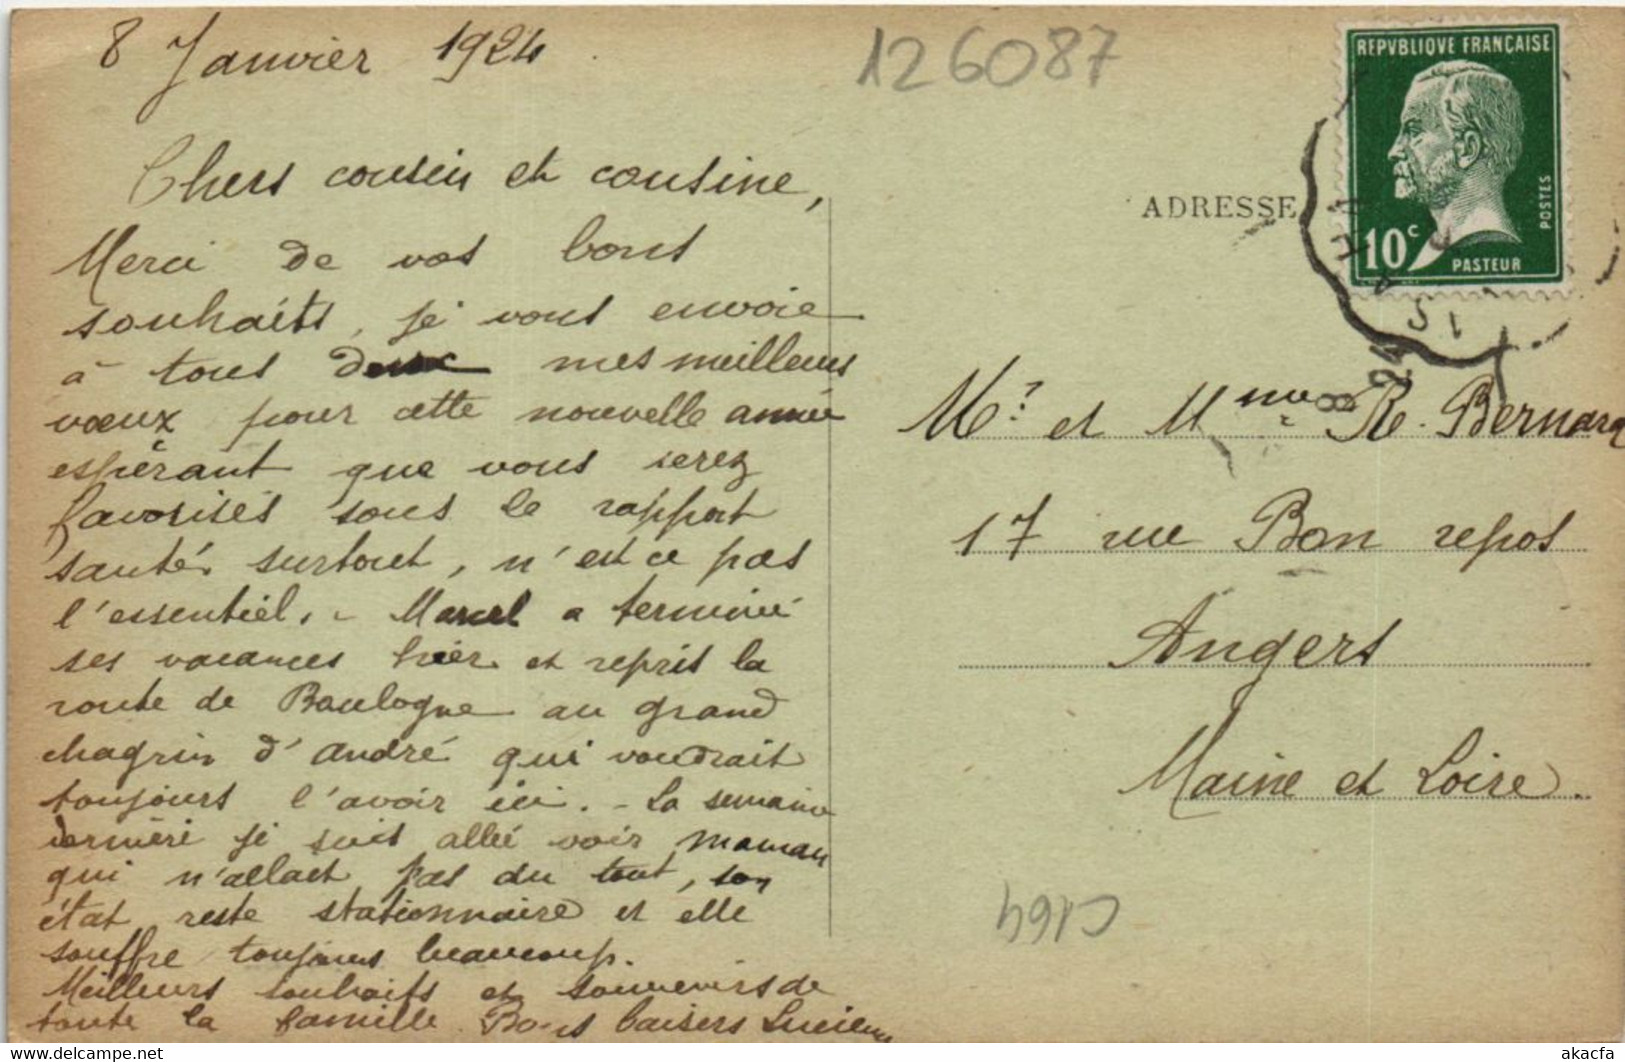 8 Janvier 1924
126087
REPVBLIQVE FRANÇAISE
10c
PASTEUR
POSTES
Chers cousin et cousine,
Merci de vos bons
souhaits, je vous envoie
à tous deux mes meilleurs
vœux pour cette nouvelle année
espérant que vous serez
favorisés sous le rapport
santé surtout, n'est ce pas
l'essentiel. - Marcel a terminé
ses vacances hier et repris la
route de Boulogne au grand
chagrin d'André qui voudrait
toujours l'avoir ici. - La semaine
dernière je suis allée voir maman
qui n'allait pas du tout, son
état reste stationnaire et elle
souffre toujours beaucoup.
Meilleurs souhaits et souvenirs de
toute la famille Bons baisers Lucienne
ADRESSE
Mr. et Mme R. Bernard
17 rue Bon repos
Angers
Maine et Loire.
C164
akacfa